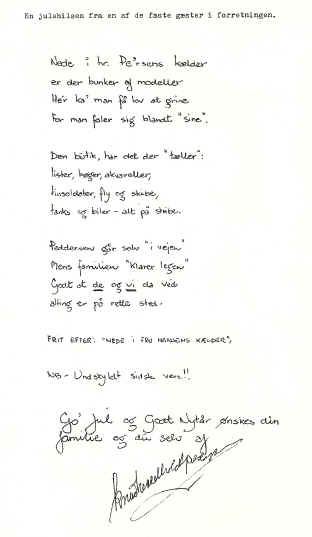 En julehilsen fra en af de faste gæster i forretningen.
Nede i hr. Pe'rsens kælder
er der bunker af modeller
He'r ka' man få lov at grine
For man føler sig blandt "sine".
Den butik, har det der "tæller":
lister, bøger, akvareller,
tinsoldater, fly og skibe,
tanks og biler - alt på stribe.
Peddersen går selv "i vejen"
Mens familien "klarer legen"
Godt at de og vi da ved
alting er på rette sted.
FRIT EFTER: "NEDE I FRU HANSENS KÆLDER",
NB - Undskyld sidste vers!!
Go' Jul og Godt Nytår ønskes din
familie og du selv af